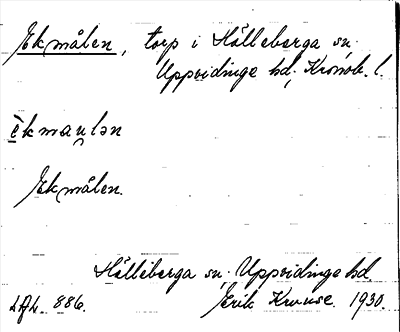 Ekmålen, torp i Hälleberga sn.
Uppvidinge hd, Kronob. l.
èkmau̯lən
Ekmålen.
Hälleberga sn. Uppvidinge hd
886. Erik Kruuse. 1930.